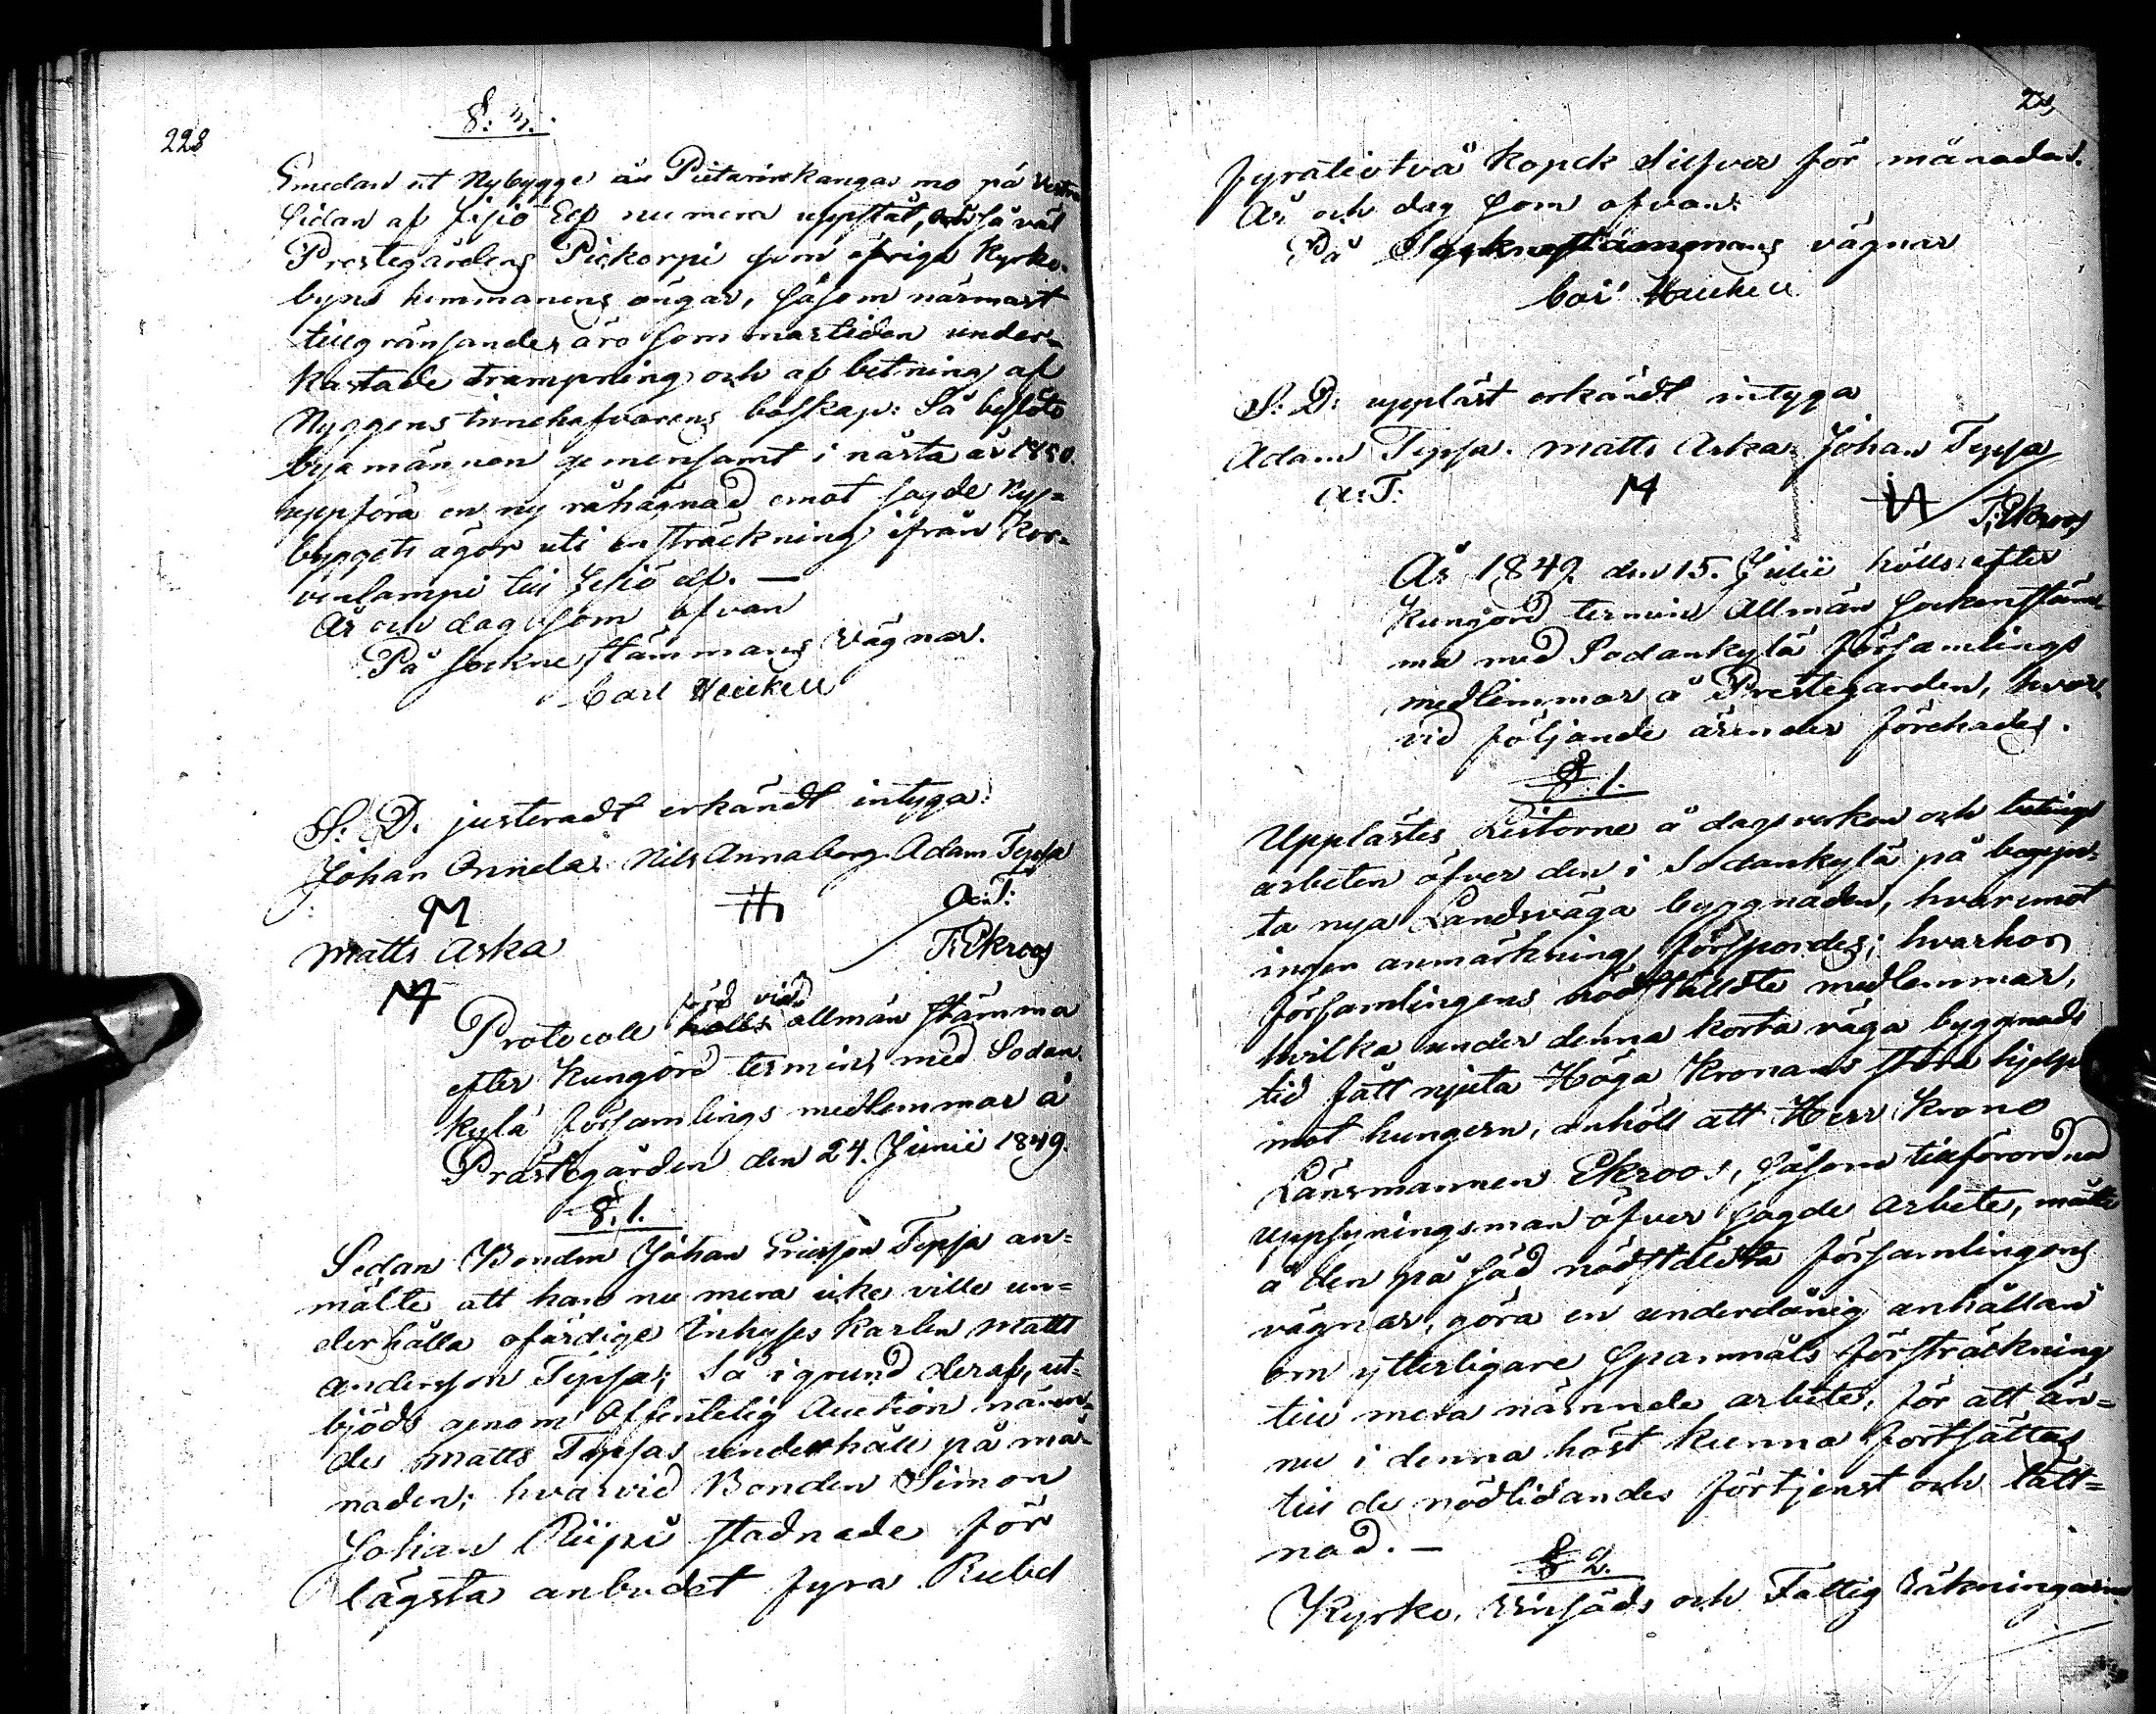 228
§. 3.
Emedan ett Nybygge å Pietarinkangas mo på Vestra
sidan af Jesiö Elf numera uppstått, och så väl
Prestegårdens Piekorpi som öfriga Kyrko-
byns hemmanens ängar, såsom närmast
tillgränsande, äro sommartiden under-
kastade trampning och af betning af
Nyggens innehafvarens boskap: Så beslöto
byamännen gemensamt i nästa år 1850.
uppföra en ny råhägnad emot sagde Ny-
byggets ägor uti en sträckning ifrån Kor-
venlampi till Jesiö elf. —
År och dag som ofvan
På sockne stämmans vägnar.
Carl Heickell
S. D. justeradt erkändt intyga:
Johan Onnela. Nils Annaberg. Adam Teppa
A:T:
Matts Aska
T: Ekroos
M
Protocoll hålls förd vid allmän stämma
efter kungörd termin, med Sodan-
kylä församlings medlemmar å
Prästegården den 24. Junii 1849.
§. 1.
Sedan Bonden Johan Ericsson Teppa an-
mälte att han nu mera icke ville un-
derhålla ofärdige Inhyses karlen Matts
Andersson Teppa; så i grund deraf, ut-
bjöds genom Offentelig Auction nämn-
de Matts Teppas underhåll på må-
naden; hvarvid Bonden Simon
Johan Riipi stadnade för
lägsta anbudet fyra Rubel
fyratiotvå Kopek Silfver för månaden.
År och dag som ofvan:
På Socknestämmans vägnar
Carl Heickell
S: D: uppläst erkändt intyga
Adam Teppa. Matts Aska. Johan Teppa
A: T: M
T: Ekroos
År 1849 den 15. Julii hölls efter
kungjord termin Allmän Sockenstäm-
ma med Sodankylä församlings
medlemmar å Prestegården, hvar-
vid följande ärender förehades.
§. 1.
Upplästes Listorne å dagsverken och betings
arbeten öfver den i Sodankylä på begyn-
ta nya Landsväga byggnaden, hvaremot
ingen anmärkning förspordes; hvarhos
församlingens nödstälde medlemmar,
hvilka under denna korta väga byggnads
tid fått njuta Höga Kronans stora hjelp
mot hungern, anhöll att Herr Krono
Länsmannen Ekroos, såsom tillförordnad
uppsyningsman öfver sagde arbete, måtte
å den på såd nödstälda församlingens
vägnar, göra en underdånig anhållan
om ytterligare Spanmåls försträckning
till mera nämnde arbete, för att än-
nu i denna höst kunna fortsättas
till de nödlidandes förtjenst och lätt-
nad. —
§ 2.
Kyrko, Vinsäds och Fattig Räkningarne